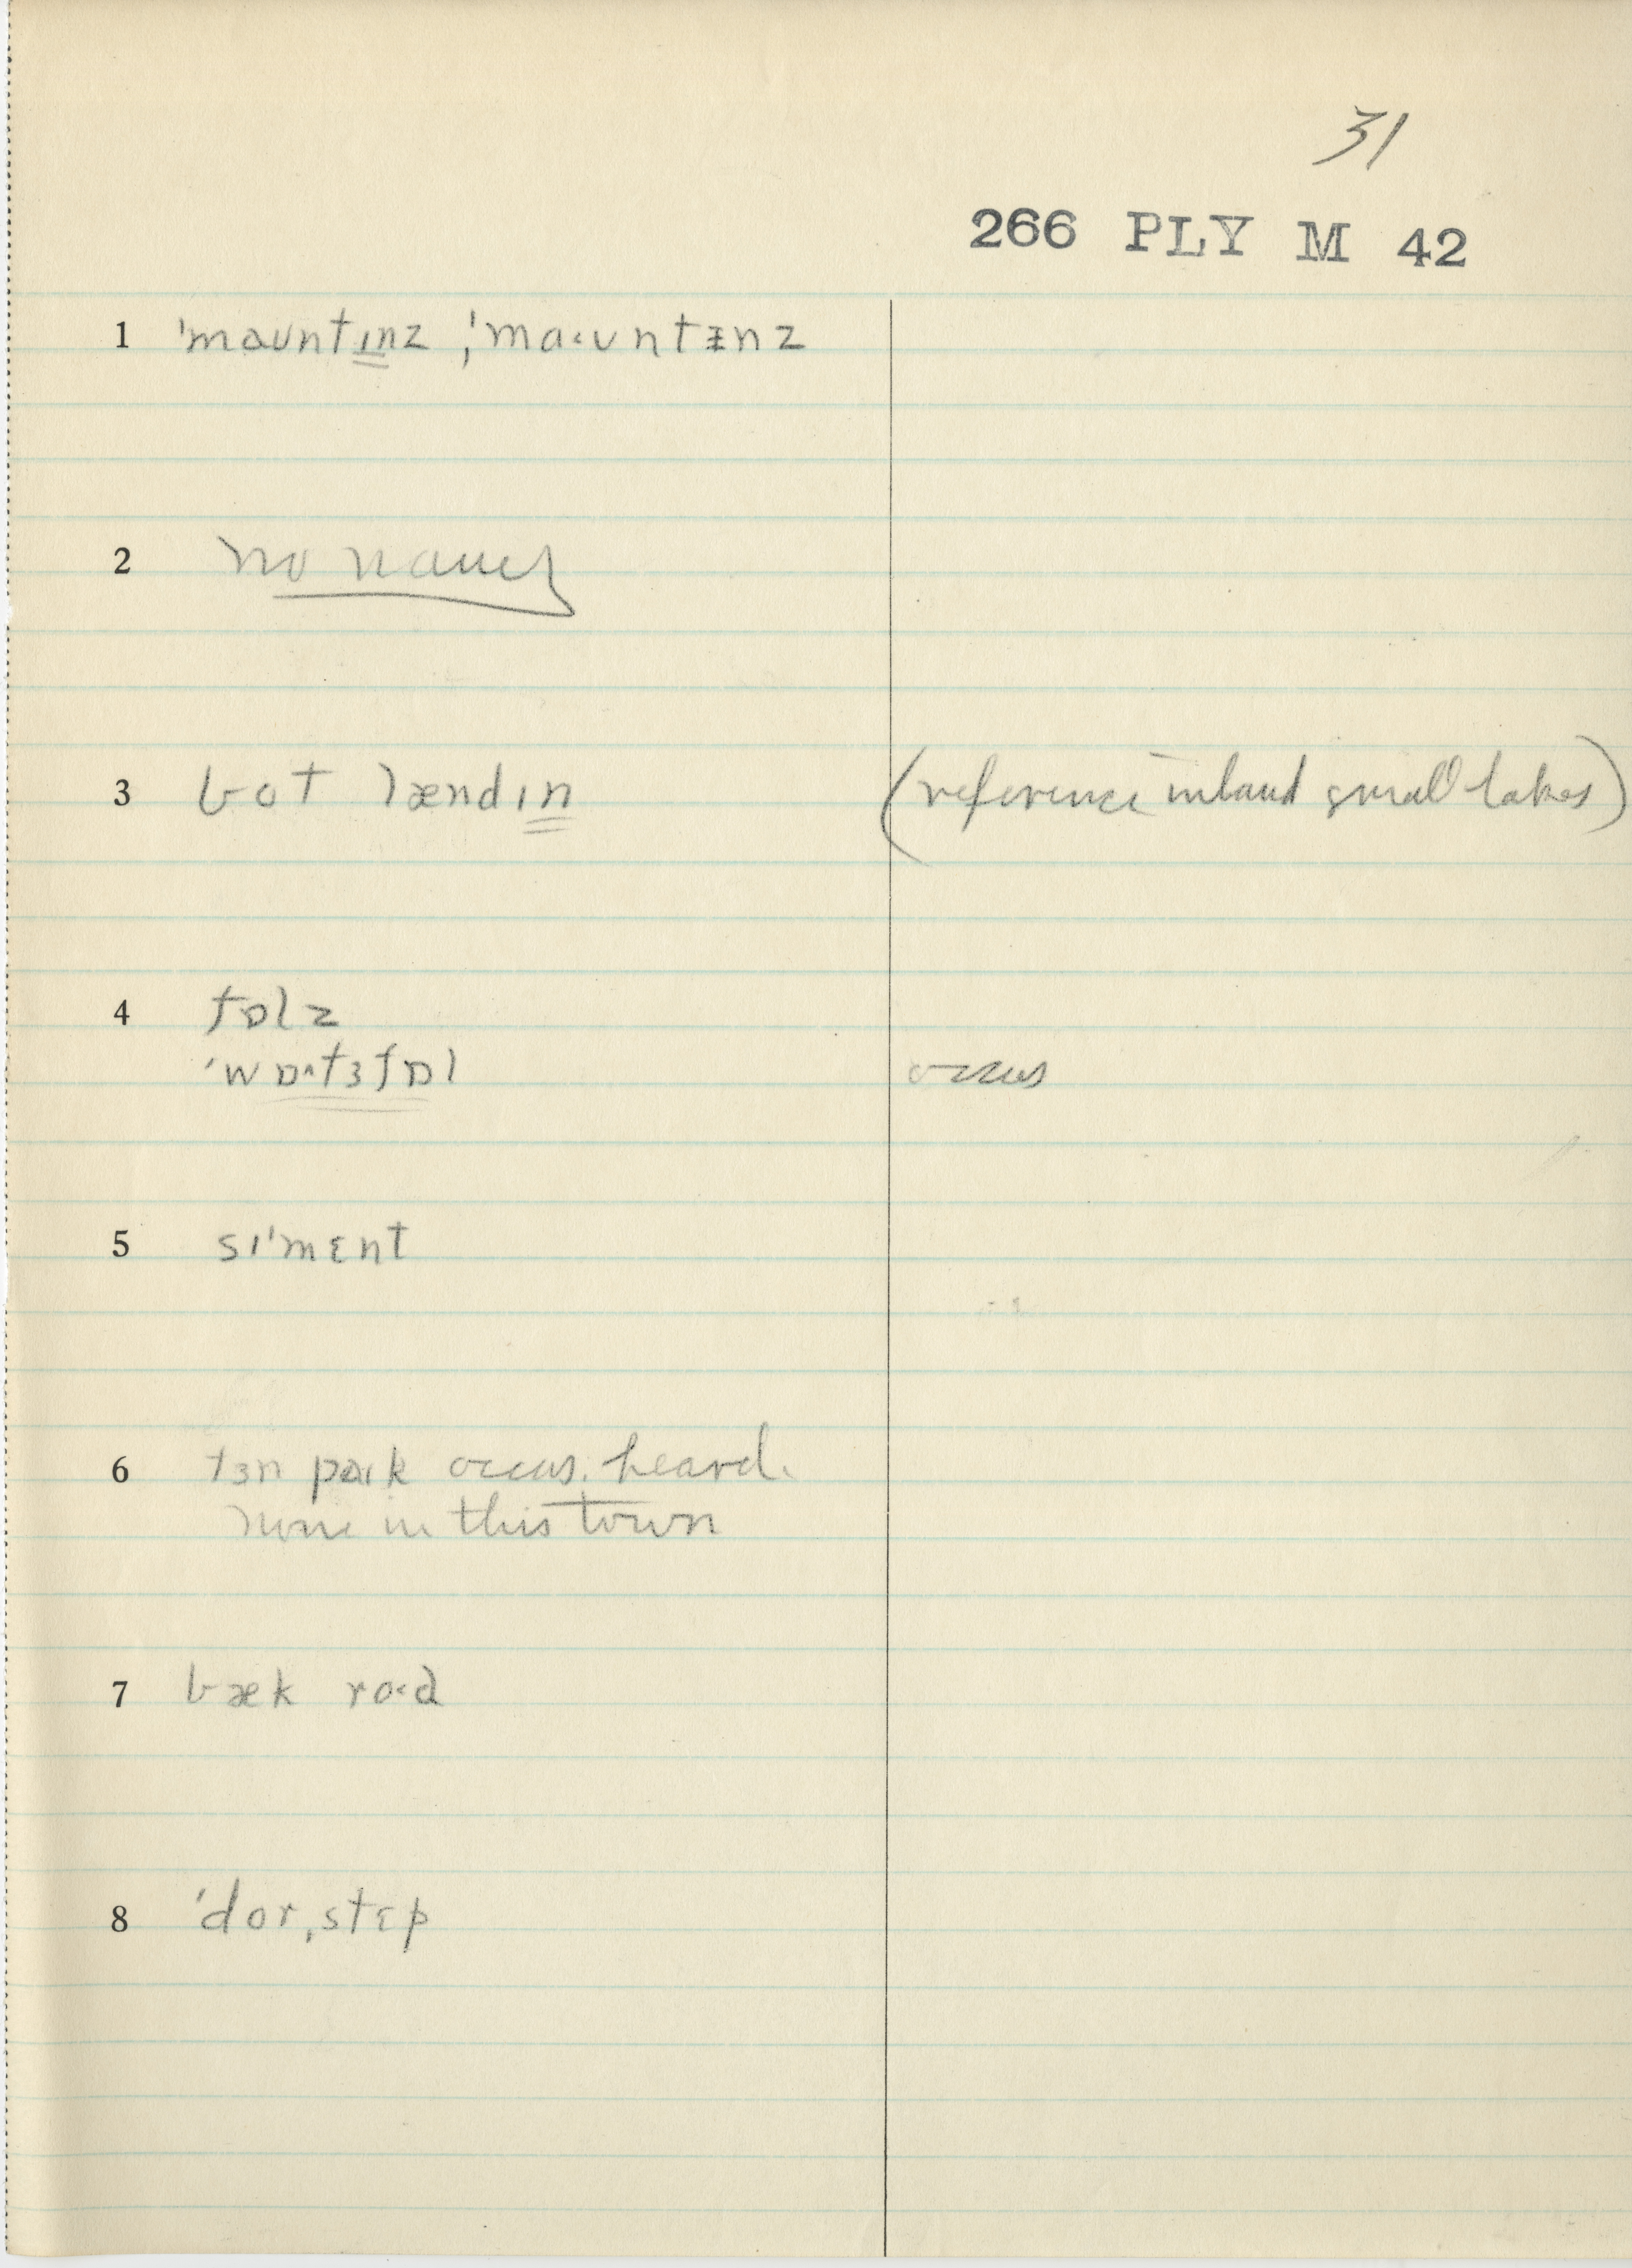 31
266 PLY M 42
1 ˈmaʊntɪnz ; ˈma˂ʊntᵻnz
2 no names
3 bot lændɪn (reference inland small lakes)
4 fɒlz
ˈwɒ˄tɜfɒl occurs
5 sɪˈmɛnt
6 tɜn paɪk occurs. heard.
none in this town
7 bæk ro˂d
8 ˈdorˌstɛp